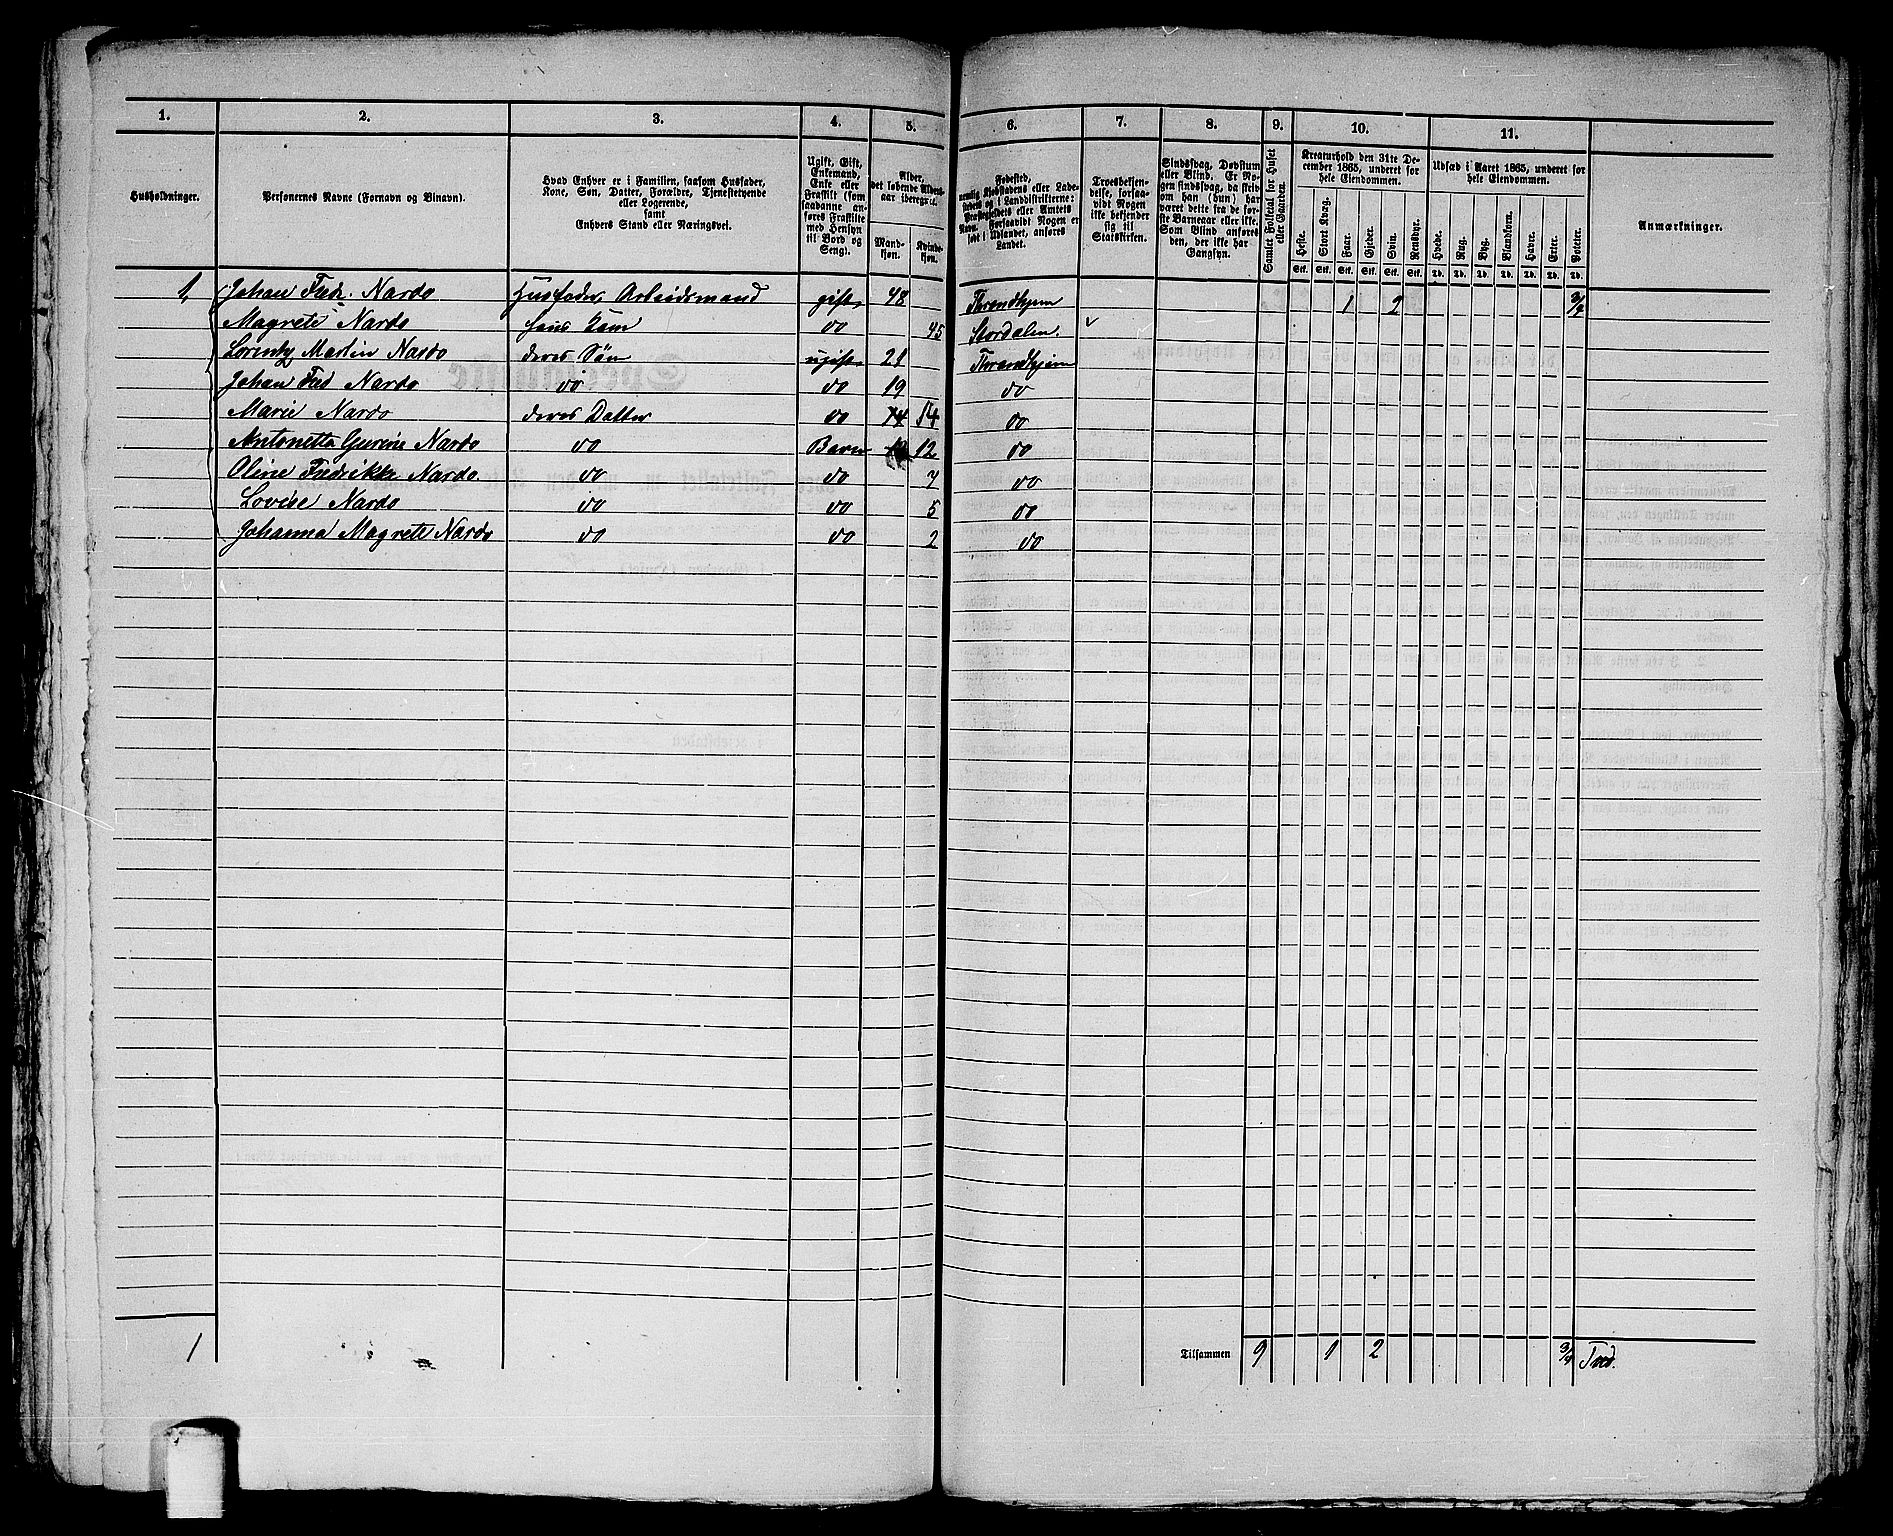 1. 2. 3. 4. 5. 6. 7. 8. 9. 10. 11.
Husholdninger.
Personernes Navne (Fornavn og Binavn).
Hvad Enhver er i Familien, saasom Husfader,
Kone, Søn, Datter, Forældre, Tjenestetyende
eller Logerende,
samt
Enhvers Stand eller Næringsvei.
Ugift, Gift,
Enkemand,
Enke eller
Fraskilt (som
saadanne an-
føres Fraskilte
med Hensyn
til Bord og
Seng).
Alder,
det løbende Alders-
aar iberegnet.
Mand-
kjøn.
Kvinde-
kjøn.
Fødested,
nemlig Kjøbstadens eller Lade-
stedets og i Landdistrikterne:
Præstegjeldets eller Amtets
Navn. Forsaavidt Nogen er
født i Udlandet, anføres
Landet.
Troesbekjen-
delse, forsaa-
vidt Nogen
ikke bekjender
sig til
Statskirken.
Sindssvag, Døvstum
eller Blind. Er No-
gen sindssvag, da skriv
om han (hun) har
været dette fra de før-
ste Barneaar eller ikke.
Som Blind anføres
den, der ikke har
Gangsyn.
Samlet Folketal for Huset
eller Gaarden.
Kreaturhold den 31te De-
cember 1865, underet for
hele Eiendommen.
Heste. Stort Kvæg. Faar. Gjeder. Svin. Rensdyr.
Stk. Stk. Stk. Stk. Stk. Stk.
Udsæd i Aaret 1865, underet for
hele Eiendommen.
Hvede. Rug. Byg. Blandkorn. Havre. Erter. Poteter.
Td. Td. Td. Td. Td. Td. Td.
Anmærkninger.
1, Johan Fred. Nardo Husfader Arbeidsmand gift 48 Throndhjem 1 2 3/4
Magrete Nardo hans Kone do 45 Stordalen
Lorentz Martin Nardo deres Søn ugift 21 Throndhjem
Johan Fred Nardo do do 19 do
Marie Nardo deres Datter do 14 14 do
Antonetta Gurine Nardo do Barn 12 do
Oline Fredrikke Nardo. do do 7 do
Lovise Nardo do do 5 do
Johanna Magrete Nardo do do 2 do
1 Tilsammen 9 1 2 3/4